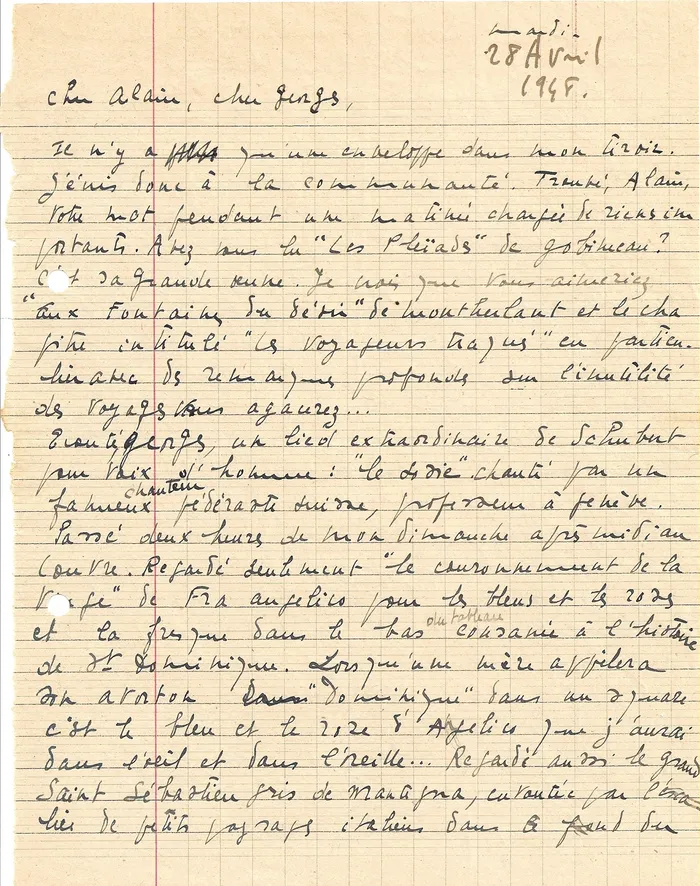 mardi
28 Avril
1948.
cher Alain, cher georges,
Il n'y a qu'une enveloppe dans mon tiroir.
J'écris donc à la communauté. Trouvé, Alain,
votre mot pendant une matinée chargée de riens im
portants. Avez vous lu "Les Pleïades" de gobineau?
C'est sa grande œuvre. Je crois que vous aimeriez
"aux Fontaines du désir" de montherlant et le cha
pitre intitulé "les voyageurs traqués" en particu-
lier avec des remarques profondes sur l'inutilité
des voyages vous agaurez...
Ecouté georges, un lied extraordinaire de Schubert
pour voix d'homme : "le sosie" chanté par un
fameux chanteur pédéraste suisse, professeur à genève.
Passé deux heures de mon dimanche après midi au
Louvre. Regardé seulement "le couronnement de la
Vierge" de Fra angelico pour les bleus et les roses
et la fresque dans le bas du tableau consacrée à l'histoire
de St Dominique. Lorsqu'une mère appelera
son avorton "Dominique" dans un square
c'est le bleu et le rose d'Angelico que j'aurai
dans l'œil et dans l'oreille... Regardé aussi le grand
Saint Sébastien gris de Mantegna, envoutée par l'esca
lier de petits paysages italiens dans le fond du